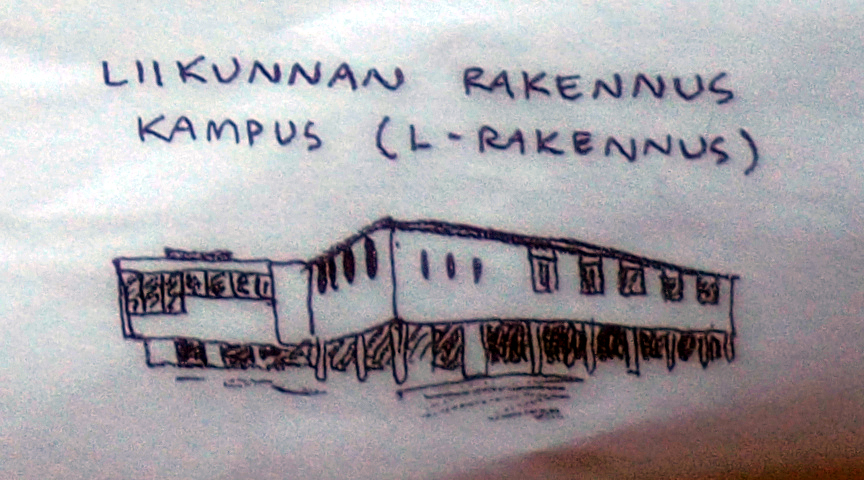 LIIKUNNAN RAKENNUS
KAMPUS (L-RAKENNUS)